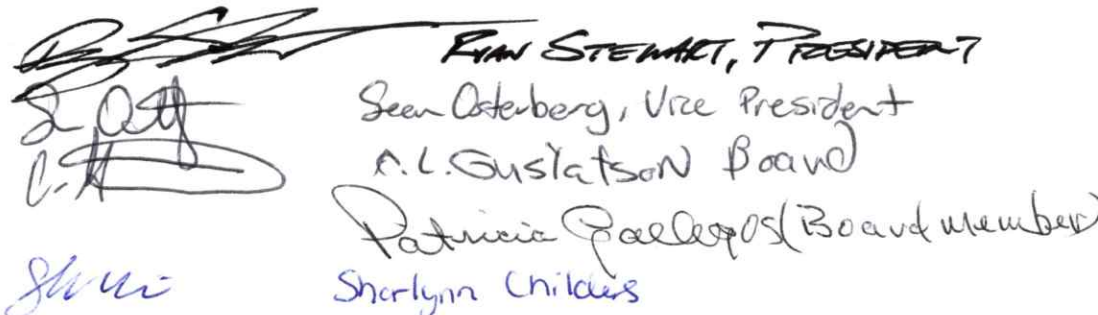 RYAN STEWART, PRESIDENT
Sean Osterberg, Vice President
A.L. Gustafson Board
Patricia Gallegos (Board member)
Sharlynn Childers